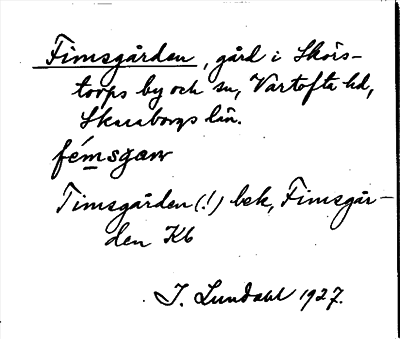 Fimsgården, gård i Skörs-
torps by och sn, Vartofta hd,
Skaraborgs län.
fémsgaṛn
Timsgården (!) bsk, Fimsgår-
den Kb
I. Lundahl 1927.